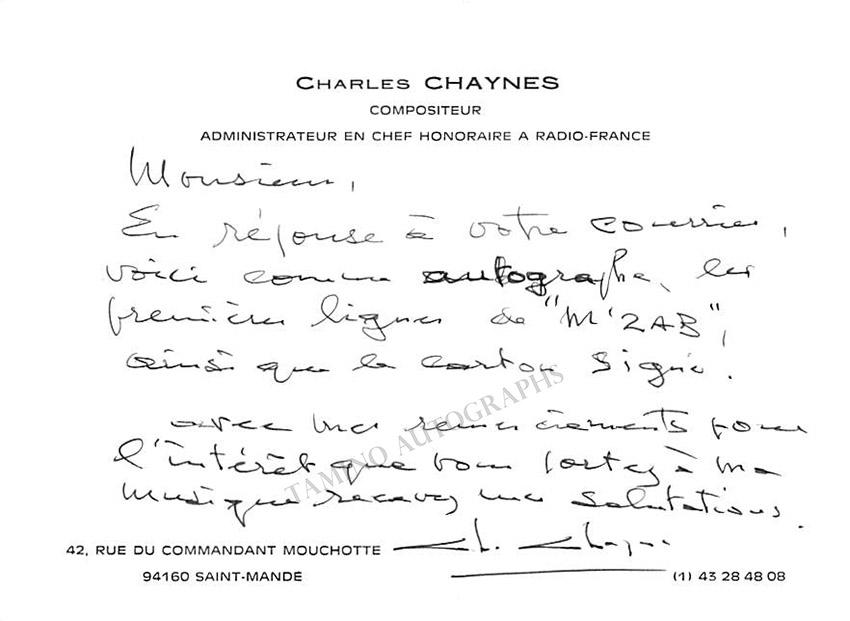 CHARLES CHAYNES
COMPOSITEUR
ADMINISTRATEUR EN CHEF HONORAIRE A RADIO-FRANCE
Monsieur,
En réponse à votre courrier,
voici comme autographe, les
premières lignes de "M'ZAB",
ainsi que le carton signé.
avec mes remerciements pour
l'intérêt que vous portez à ma
musique recevez mes salutations.
Ch. Chaynes
42, RUE DU COMMANDANT MOUCHOTTE
94160 SAINT-MANDE
(1) 43 28 48 08
TAMINO AUTOGRAPHS